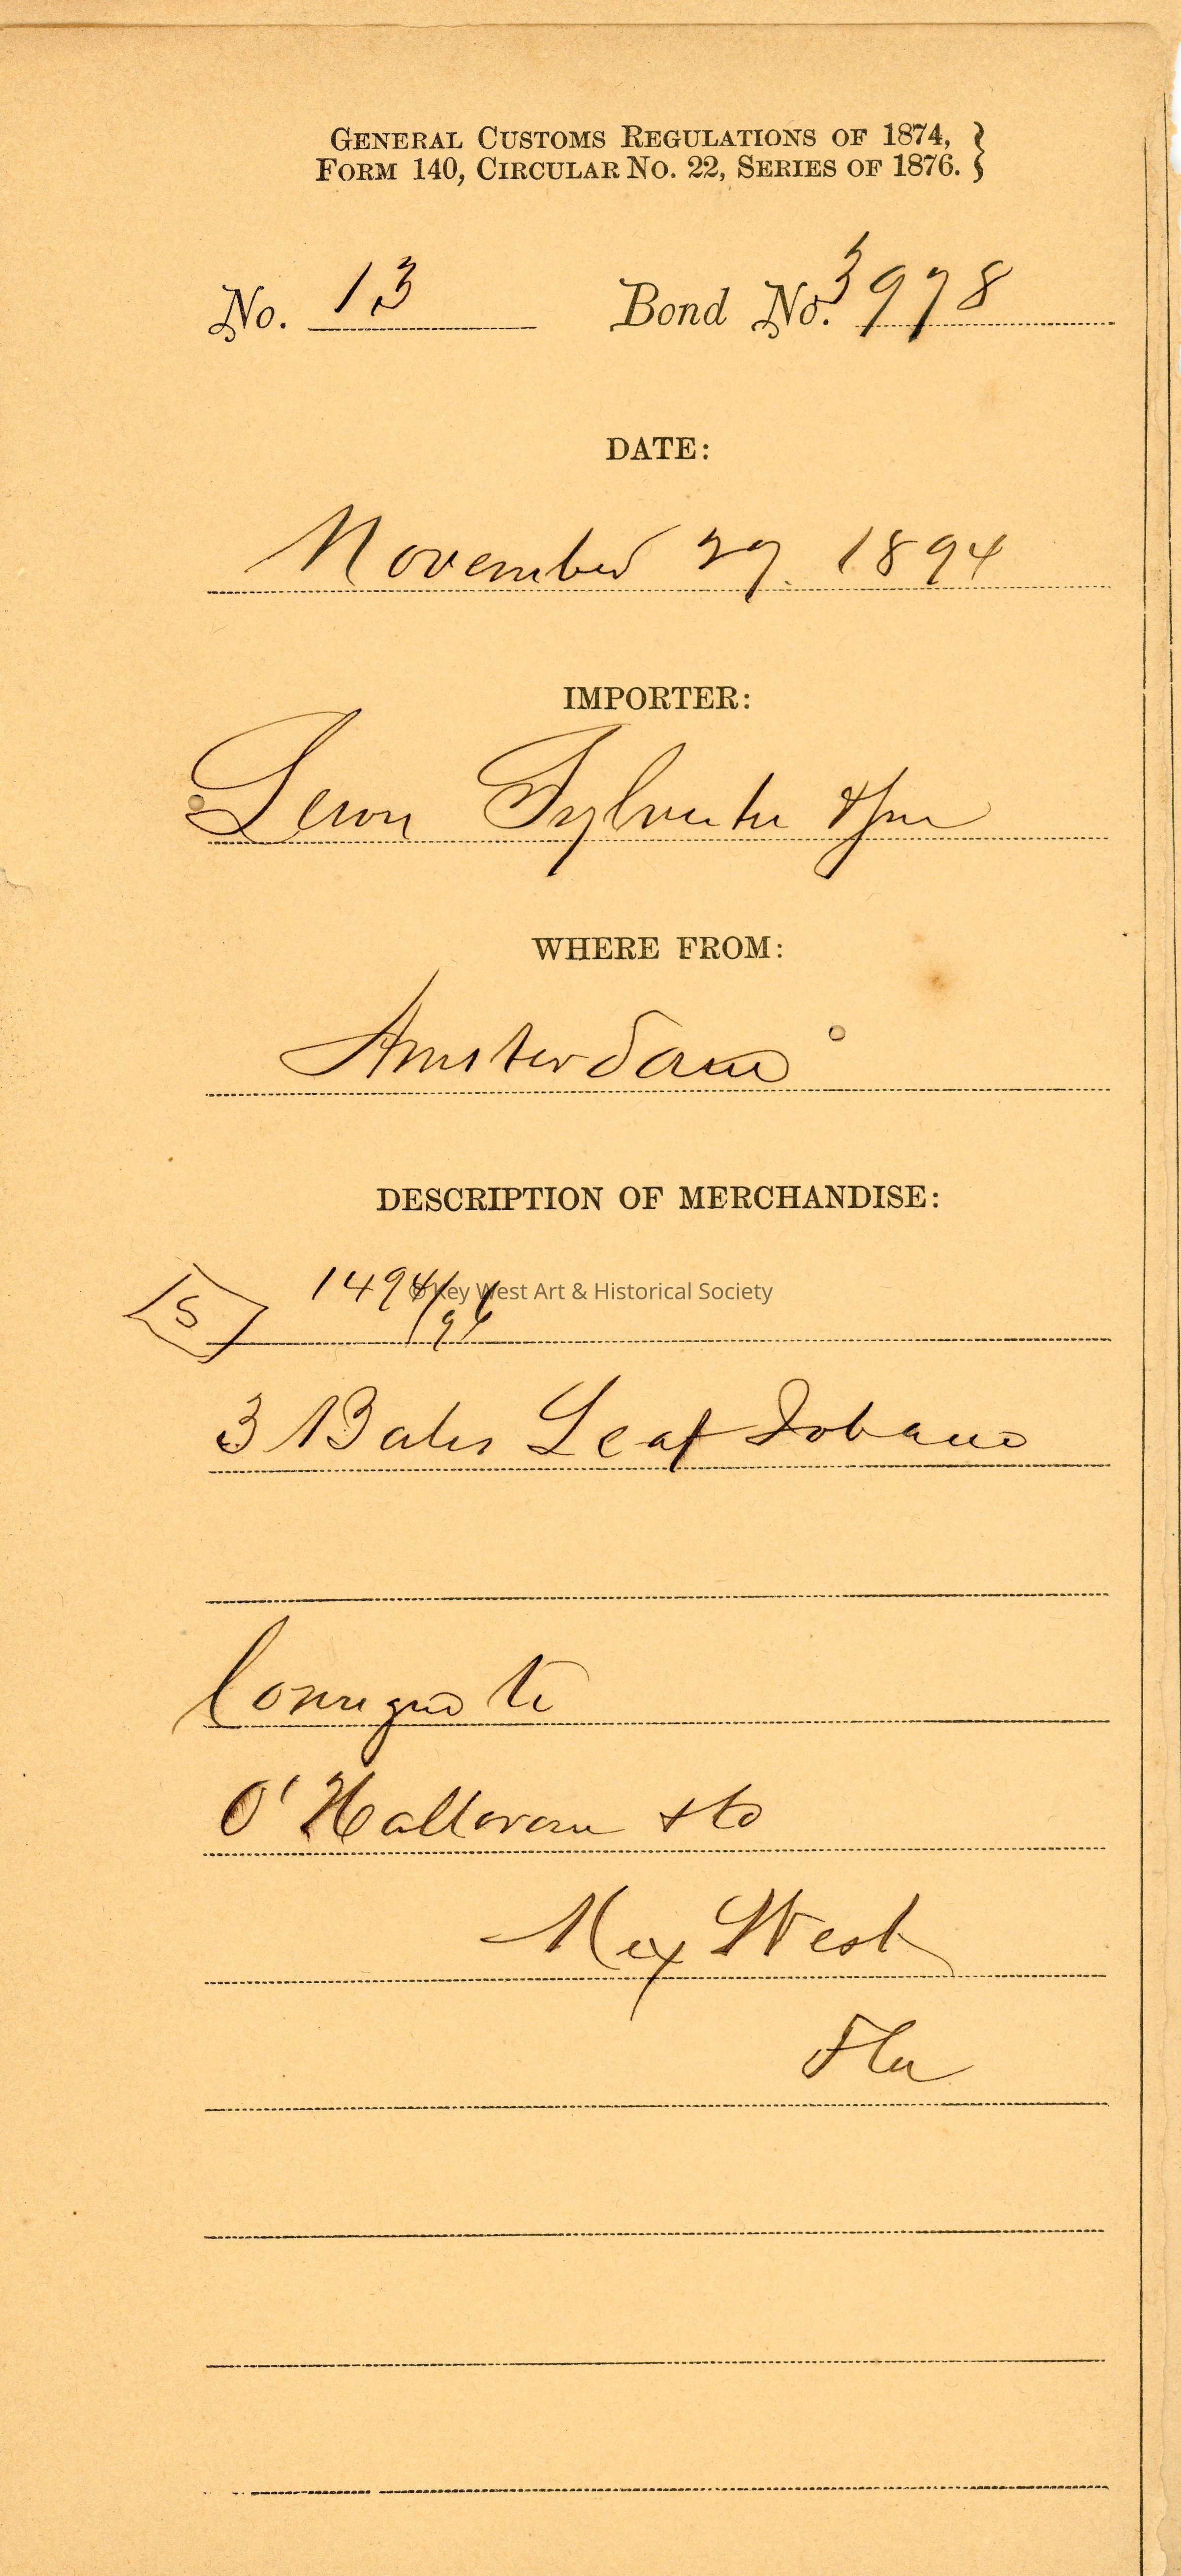 GENERAL CUSTOMS REGULATIONS OF 1874,
FORM 140, CIRCULAR No. 22, SERIES OF 1876. }
No. 13 Bond No. 3978
DATE:
November 27. 1894
IMPORTER:
Leon Sylvester & Son
WHERE FROM:
Amsterdam
DESCRIPTION OF MERCHANDISE:
S 1494/96
© Key West Art & Historical Society
3 Bales Leaf Tobacco
Consigned to
O'Halloran & Co
Key West
Fla